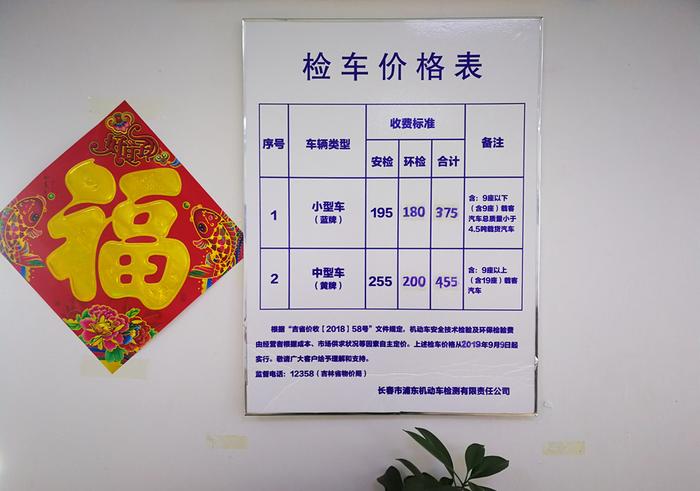 检车价格表
序号 车辆类型 收费标准 备注
安检 环检 合计
1 小型车 (蓝牌) 195 180 375
含:9座以下
(含9座)载客
汽车总质量小于
4.5吨载货汽车
2 中型车 (黄牌) 255 200 455
含:9座以上
(含19座)载客
汽车
根据“吉省价收【2018】58号”文件规定,机动车安全技术检验及环保检验费
由经营者根据成本、市场供求状况等因素自主定价。上述检车价格从2019年9月9日起
实行。敬请广大客户给予理解和支持。
监督电话:12358(吉林省物价局)
长春市浦东机动车检测有限责任公司
福